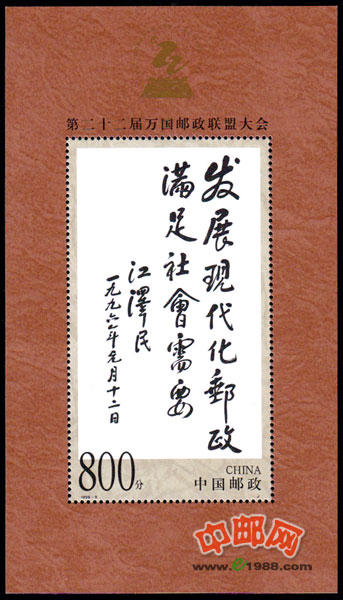 第二十二届万国邮政联盟大会
发展现代化郵政
满足社會需要
江澤民
一九九六年元月十二日
800分
CHINA
中国邮政
中邮网
www.e1988.com